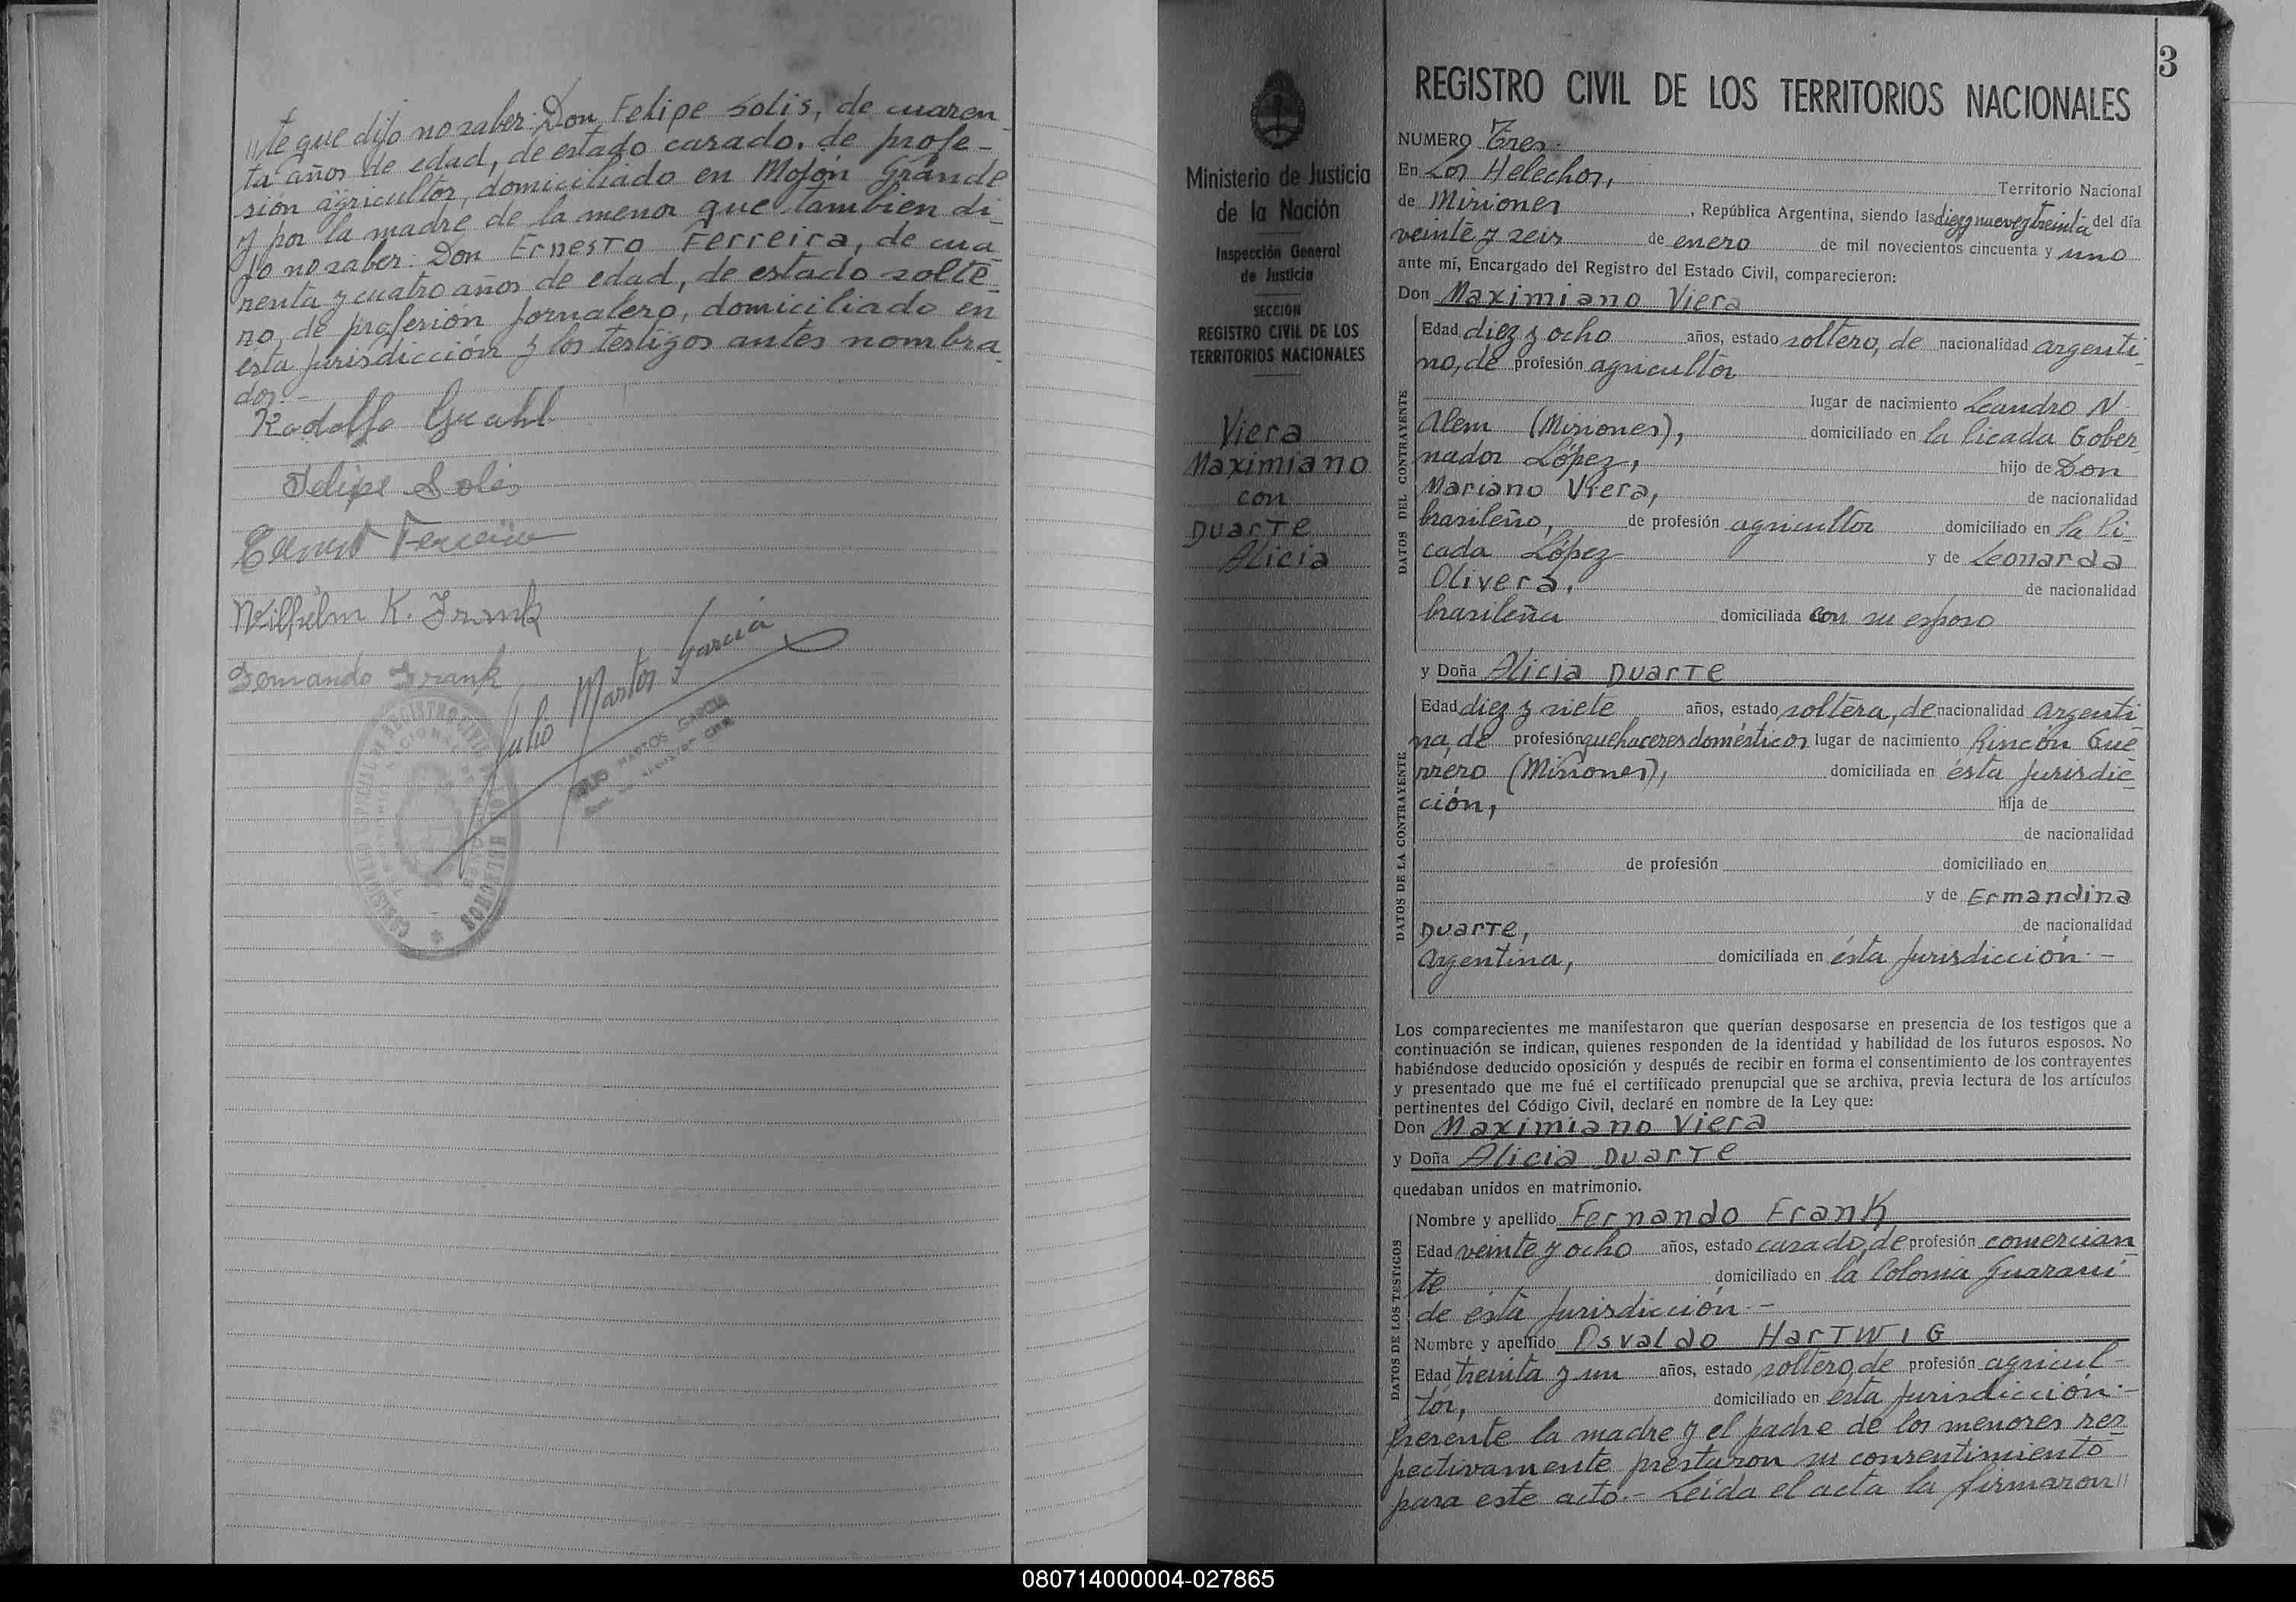 "te que dijo no saber: Don Felipe Solis, de cuaren
ta años de edad, de estado casado, de profe-
sión agricultor, domiciliado en Mojón Grande
y por la madre de la menor que tambien di
jo no saber: Don Ernesto Ferreira, de cua
renta y cuatro años de edad, de estado solte
ro, de profesión jornalero, domiciliado en
esta jurisdicción y los testigos antes nombra
dos.-
Rodolfo Grahl
Felipe Solis
Ernest Ferreira
Wilhelm K. Frank
Fernando Frank
Julio Martos Garcia
JULIO MARTOS GARCIA
3
Ministerio de Justicia
de la Nación
Inspección General
de Justicia
SECCIÓN
REGISTRO CIVIL DE LOS
TERRITORIOS NACIONALES
Viera
Maximiano
con
Duarte
Alicia
REGISTRO CIVIL DE LOS TERRITORIOS NACIONALES
NUMERO Tres.
En Los Helechos, Territorio Nacional
de Misiones, República Argentina, siendo las diez y nueve y treinta del día
veinte y seis de enero de mil novecientos cincuenta y uno
ante mí, Encargado del Registro del Estado Civil, comparecieron:
Don Maximiano Viera
DATOS DEL CONTRAYENTE
Edad diez y ocho años, estado soltero, de nacionalidad argenti
no, de profesión agricultor
lugar de nacimiento Leandro N.
Alem (Misiones), domiciliado en la Picada Gober
nador López, hijo de Don
Mariano Viera, de nacionalidad
brasileño, de profesión agricultor domiciliado en la Pi-
cada López y de Leonarda
Olivera, de nacionalidad
brasileña domiciliada con su esposo
y Doña Alicia Duarte
DATOS DE LA CONTRAYENTE
Edad diez y siete años, estado soltera, de nacionalidad argenti
na, de profesión quehaceres domésticos lugar de nacimiento Rincón Gue
rrero (Misiones), domiciliada en ésta jurisdic
ción, hija de
de nacionalidad
de profesión domiciliado en
y de Ermandina
Duarte, de nacionalidad
Argentina, domiciliada en ésta jurisdicción.-
Los comparecientes me manifestaron que querían desposarse en presencia de los testigos que a
continuación se indican, quienes responden de la identidad y habilidad de los futuros esposos. No
habiéndose deducido oposición y después de recibir en forma el consentimiento de los contrayentes
y presentado que me fué el certificado prenupcial que se archiva, previa lectura de los artículos
pertinentes del Código Civil, declaré en nombre de la Ley que:
Don Maximiano Viera
y Doña Alicia Duarte
quedaban unidos en matrimonio.
DATOS DE LOS TESTIGOS
Nombre y apellido Fernando Frank
Edad veinte y ocho años, estado casado, de profesión comercian
te domiciliado en la Colonia Guaraní
de ésta jurisdicción.-
Nombre y apellido Osvaldo HartwiG
Edad treinta y un años, estado soltero, de profesión agricul-
tor, domiciliado en ésta jurisdicción.-
Presente la madre y el padre de los menores res
pectivamente prestaron su consentimiento
para este acto.- Leída el acta la firmaron"
080714000004-027865